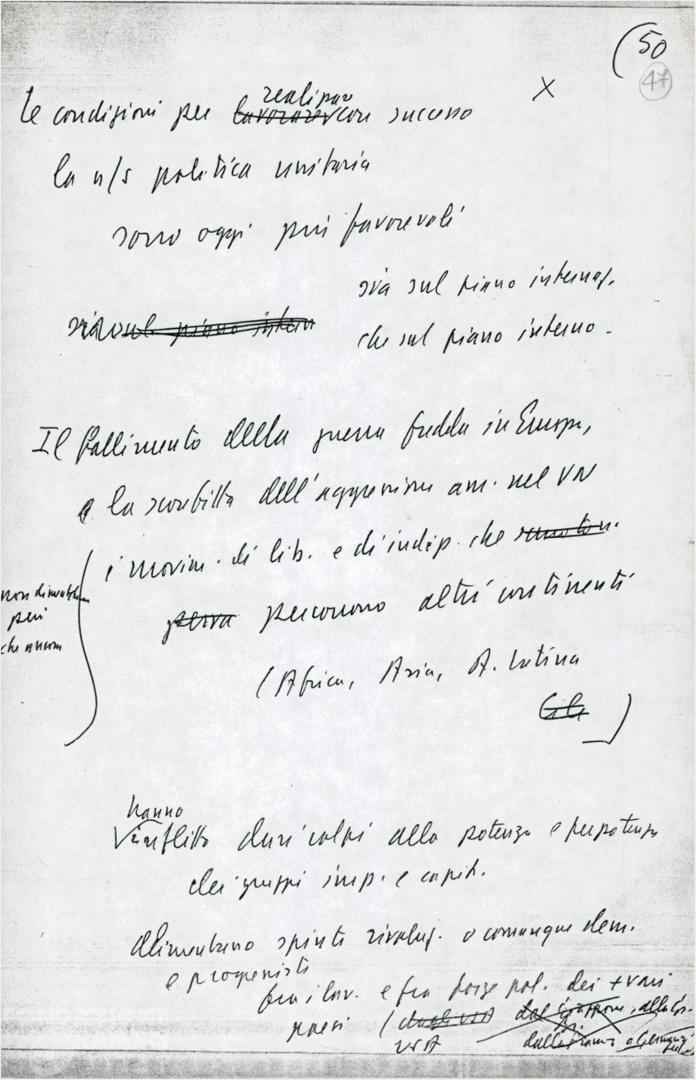 (50
47
X
realizzare
Le condizioni per lavorare con successo
la n/s politica unitaria
sono oggi più favorevoli
sia sul piano internaz.
sia sul piano intern
che sul piano interno.
Il fallimento della guerra fredda in Europa,
e la sconfitta dell'aggressione am. nel VN
i movim. di lib. e di indip. che
non dimentic.
percorrono altri continenti
però
che ancora
(Africa, Asia, A. Latina
)
hanno
inflitto duri colpi alla potenza e prepotenza
dei gruppi imp. e capit.
Alimentano spinte rivoluz. o comunque dem.
e progressiste
fra i lav. e fra forze pol. dei + vari
paesi (dagli USA dal Giappone, alla
USA dalla Francia